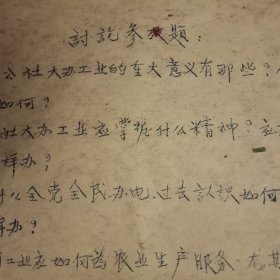 討論参攷題：
公社大办工业的重大意义有那些？
如何？
社大办工业应掌握什么精神？应
样办？
什么全党全民办电，过去认识如何
样办？
工业应如何为农业生产服务，尤其